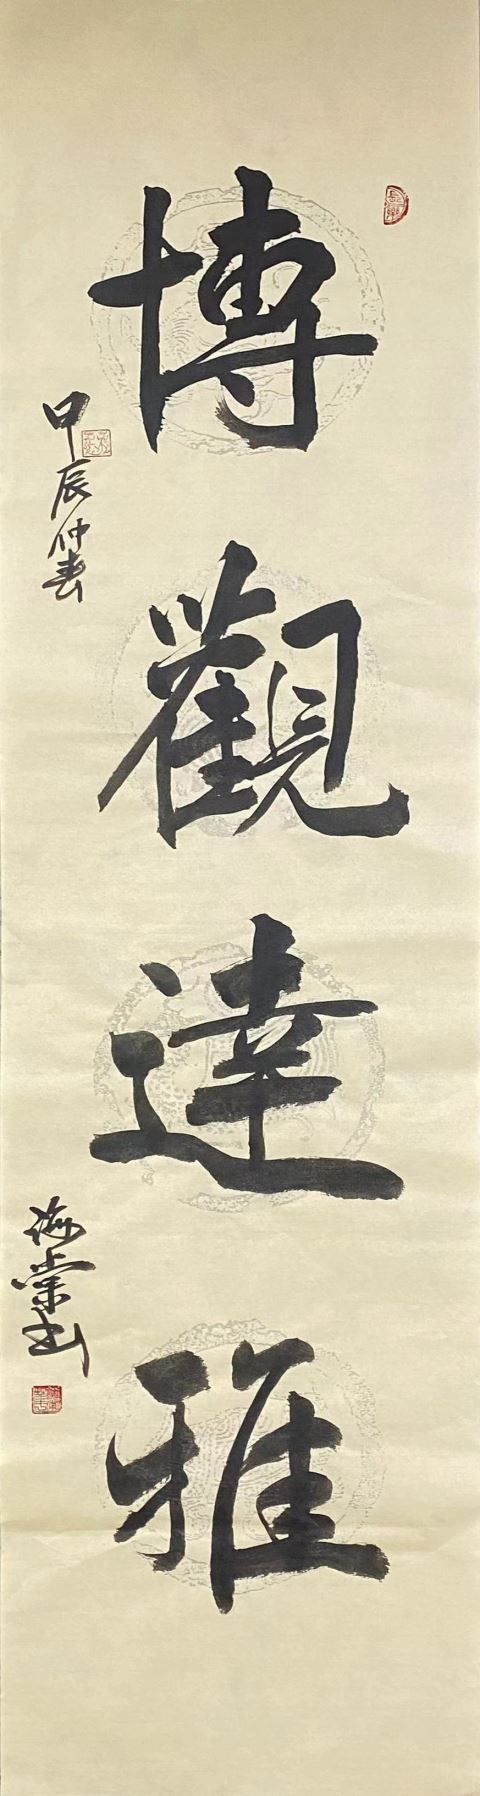 博觀達雅
甲辰仲春
海棠书